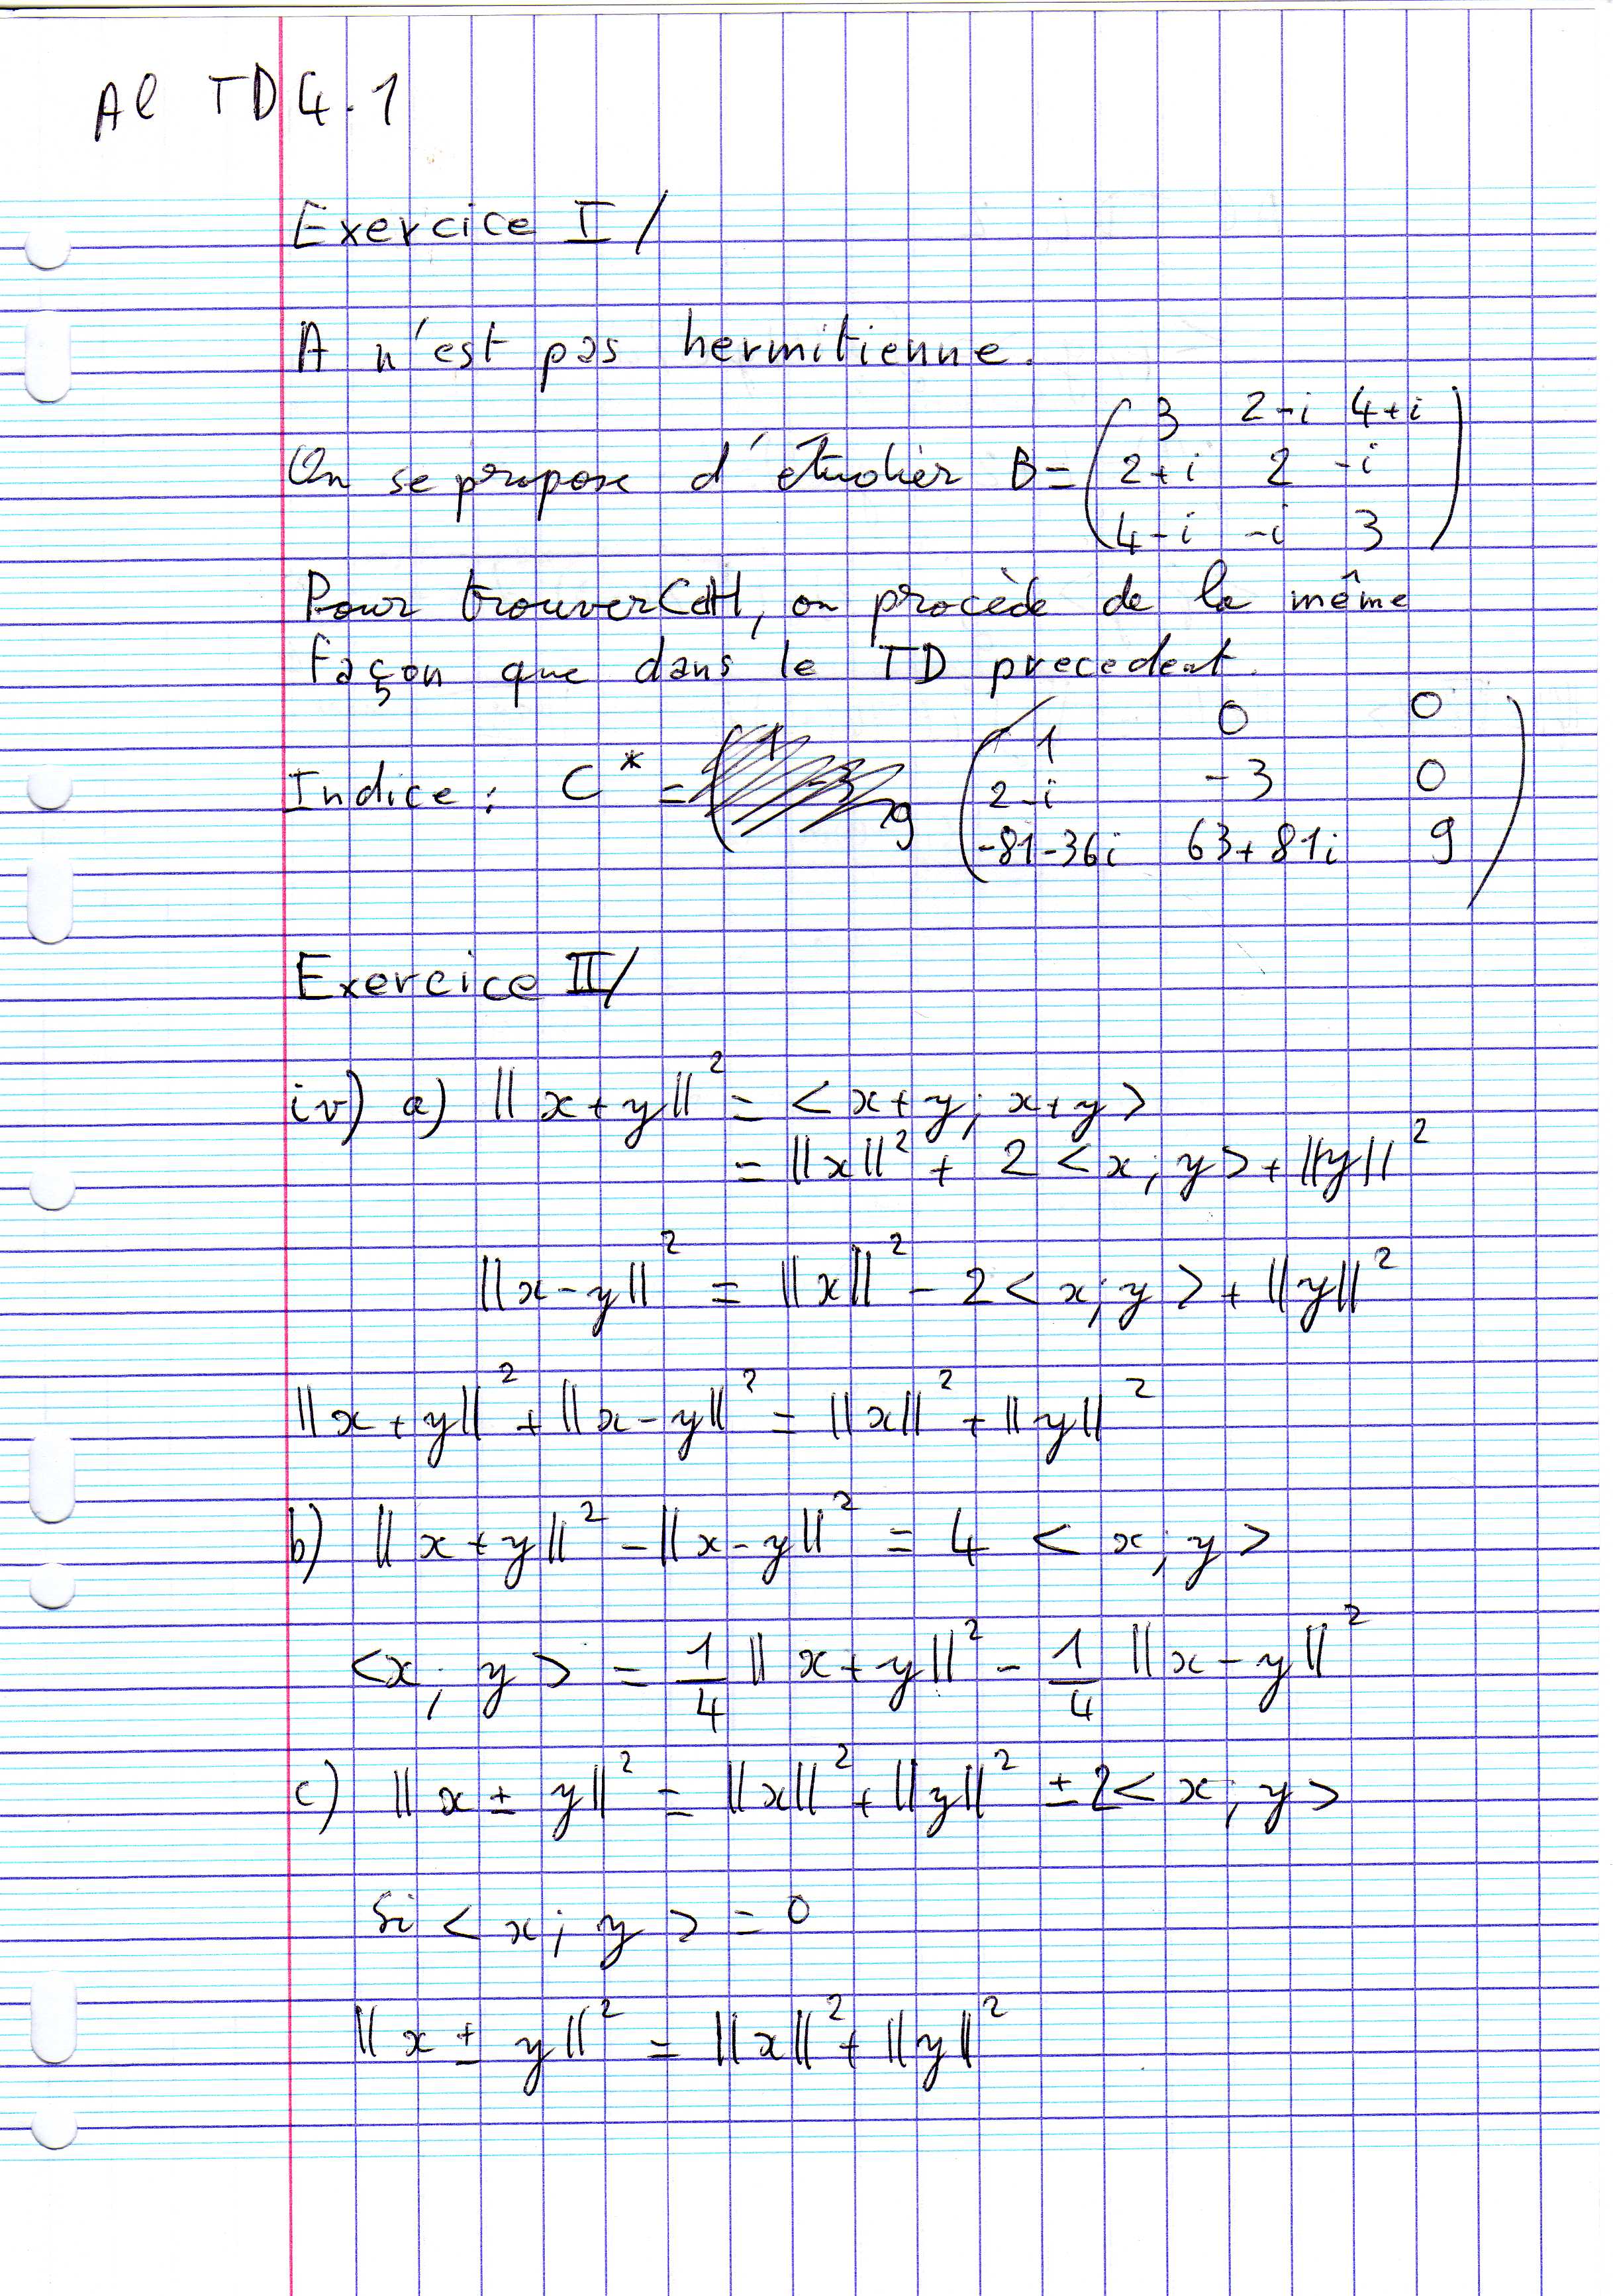 Al TD 4.1
Exercice I/
A n'est pas hermitienne.
On se propose d'étudier B = ( 3 2-i 4+i
2+i 2 -i
4-i -i 3 )
Pour trouver C et H, on procède de la même
façon que dans le TD precedent.
Indice : C* = ( 1 0 0
2-i -3 0
-81-36i 63+81i 9 )
Exercice II/
iv) a) ||x+y||² = <x+y; x+y>
= ||x||² + 2 <x; y> + ||y||²
||x-y||² = ||x||² - 2 <x; y> + ||y||²
||x+y||² + ||x-y||² = ||x||² + ||y||²
b) ||x+y||² - ||x-y||² = 4 <x; y>
<x; y> = 1/4 ||x+y||² - 1/4 ||x-y||²
c) ||x ± y||² = ||x||² + ||y||² ± 2 <x; y>
Si <x; y> = 0
||x ± y||² = ||x||² + ||y||²